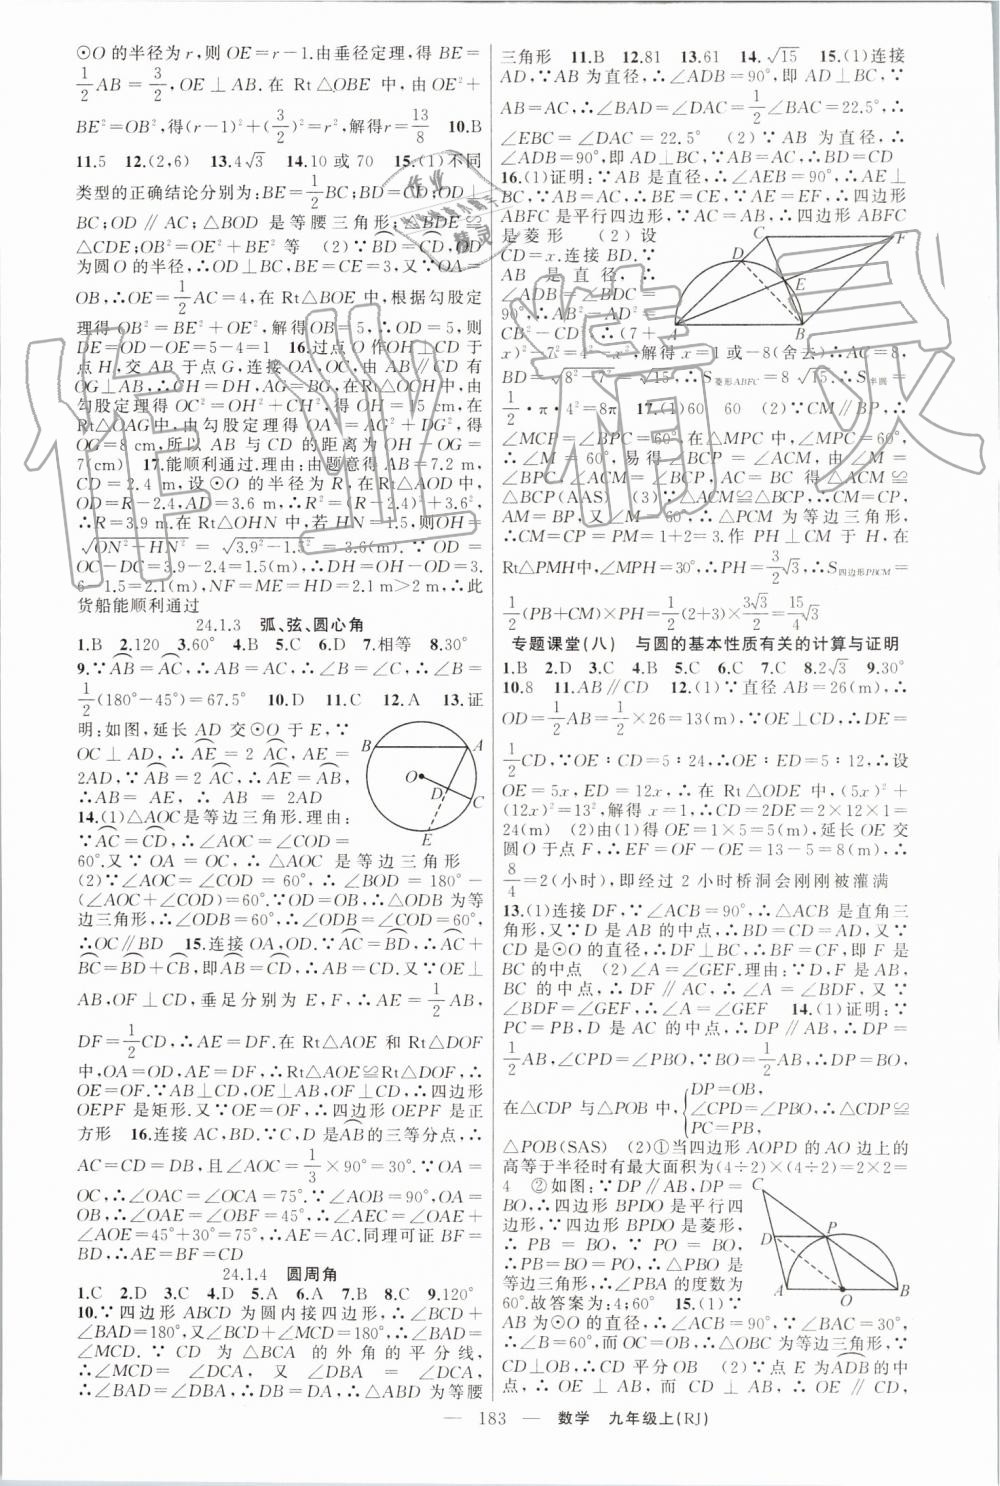 ⊙O 的半径为 r,则 OE=r−1.由垂径定理,得 BE=
1/2 AB=3/2,OE⊥AB.在 Rt△OBE 中,由 OE²+
BE²=OB²,得(r−1)²+(3/2)²=r²,解得 r=13/8  10.B
11.5  12.(2,6)  13.4√3  14.10 或 70  15.(1)不同
类型的正确结论分别为:BE=1/2 BC;BD=CD;OD⊥
BC;OD∥AC;△BOD 是等腰三角形;△BDE≌
△CDE;OB²=OE²+BE² 等  (2)∵BD=CD,OD
为圆 O 的半径,∴OD⊥BC,∴BE=CE=3,又∵OA=
OB,∴OE=1/2 AC=4,在 Rt△BOE 中,根据勾股定
理得 OB²=BE²+OE²,解得 OB=5,∴OD=5,则
DE=OD−OE=5−4=1  16.过点 O 作 OH⊥CD 于
点 H,交 AB 于点 G,连接 OA,OC,由 AB∥CD 有
OG⊥AB,∴CH=DH,AG=BG,在 Rt△OCH 中,由
勾股定理得 OC²=OH²+CH²,得 OH=15 cm,在
Rt△OAG 中,由勾股定理得 OA²=AG²+OG²,得
OG=8 cm,所以 AB 与 CD 的距离为 OH−OG=
7(cm)  17.能顺利通过.理由:由题意得 AB=7.2 m,
CD=2.4 m,设⊙O 的半径为 R,在 Rt△AOD 中,
OD=R−2.4,AD=3.6 m,∴R²=(R−2.4)²+3.6²,
∴R=3.9 m.在 Rt△OHN 中,若 HN=1.5,则OH=
√(ON²−HN²)=√(3.9²−1.5²)=3.6(m).∵OD=
OC−DC=3.9−2.4=1.5(m),∴DH=OH−OD=3.
6−1.5=2.1(m),NF=ME=HD=2.1 m>2 m,∴此
货船能顺利通过
24.1.3  弧、弦、圆心角
1.B  2.120  3.60°  4.B  5.C  6.D  7.相等  8.30°
9.∵AB=AC,∴AB=AC,∴∠B=∠C,∴∠B=
1/2(180°−45°)=67.5°  10.D  11.C  12.A  13.证
明:如图,延长 AD 交⊙O 于 E,∵
OC⊥AD,∴AE=2 AC,AE=
2AD,∵AB=2 AC,∴AE=AB,
∴AB=AE,∴AB=2AD
B A O D C E
14.(1)△AOC是等边三角形.理由:
∵AC=CD,∴∠AOC=∠COD=
60°.又∵OA=OC,∴△AOC 是等边三角形
(2)∵∠AOC=∠COD=60°,∴∠BOD=180°−
(∠AOC+∠COD)=60°.∵OD=OB,∴△ODB 为等
边三角形,∴∠ODB=60°,∴∠ODB=∠COD=60°,
∴OC∥BD  15.连接 OA,OD.∵AC=BD,∴AC+
BC=BD+CB,即AB=CD,∴AB=CD.又∵OE⊥
AB,OF⊥CD,垂足分别为 E,F,∴AE=1/2 AB,
DF=1/2 CD,∴AE=DF.在 Rt△AOE 和 Rt△DOF
中,OA=OD,AE=DF,∴Rt△AOE≌Rt△DOF,∴
OE=OF.∵AB⊥CD,OE⊥AB,OF⊥CD,∴四边形
OEPF 是矩形.又∵OE=OF,∴四边形 OEPF 是正
方形  16.连接 AC,BD.∵C,D 是AB的三等分点,∴
AC=CD=DB,且∠AOC=1/3×90°=30°.∵OA=
OC,∴∠OAC=∠OCA=75°.∵∠AOB=90°,OA=
OB,∴∠OAE=∠OBF=45°,∴∠AEC=∠OAE+
∠AOE=45°+30°=75°,∴AE=AC.同理可证 BF=
BD,∴AE=BF=CD
24.1.4  圆周角
1.C  2.D  3.C  4.D  5.A  6.A  7.B  8.C  9.120°
10.∵四边形 ABCD 为圆内接四边形,∴∠BCD+
∠BAD=180°,又∵∠BCD+∠MCD=180°,∴∠BAD=
∠MCD.∵CD 为△BCA 的外角的平分线,
∴∠MCD=∠DCA,又∠DBA=∠DCA,
∴∠DBA=∠BAD,∴DB=DA,∴△ABD 为等腰
三角形  11.B  12.81  13.61  14.√15  15.(1)连接
AD,∵AB 为直径,∴∠ADB=90°,即 AD⊥BC,∵
AB=AC,∴∠BAD=∠DAC=1/2∠BAC=22.5°,∴
∠EBC=∠DAC=22.5°  (2)∵AB 为直径,∴
∠ADB=90°,即AD⊥BC,∵AB=AC,∴BD=CD
16.(1)证明:∵AB 是直径,∴∠AEB=90°,∴AE⊥
BC,∵AB=AC,∴BE=CE,∵AE=EF,∴四边形
ABFC 是平行四边形,∵AC=AB,∴四边形 ABFC
是菱形  (2)设
CD=x.连接 BD.∵
AB 是直径,∴
∠ADB=∠BDC=
90°,∴AB²−AD²=
CB²−CD²,∴(7+
C F D E A B
x)²−7²=4²−x²,解得 x=1 或−8(舍去)∴AC=8,
BD=√(8²−7²)=√15,∴S菱形ABFC=8√15.∴S半圆=
1/2·π·4²=8π  17.(1)60  60  (2)∵CM∥BP,∴
∠MCP=∠BPC=60°,在△MPC 中,∠MPC=60°,
∴∠M=60°,易得∠BCP=∠ACM,由∠M=
∠BPC,∠PAC=∠PBC,BC=AC 得△ACM≌
△BCP(AAS)  (3)∵△ACM≌△BCP,∴CM=CP,
AM=BP,又∠M=60°,∴△PCM 为等边三角形,
∴CM=CP=PM=1+2=3.作 PH⊥CM 于 H,在
Rt△PMH中,∠MPH=30°,∴PH=3/2√3,∴S四边形PBCM=
1/2(PB+CM)×PH=1/2(2+3)×3√3/2=15/4√3
专题课堂(八)  与圆的基本性质有关的计算与证明
1.B  2.D  3.C  4.C  5.C  6.C  7.C  8.2√3  9.30°
10.8  11.AB∥CD  12.(1)∵直径 AB=26(m),∴
OD=1/2 AB=1/2×26=13(m),∵OE⊥CD,∴DE=
1/2 CD,∵OE∶CD=5∶24,∴OE∶DE=5∶12,∴设
OE=5x,ED=12x,∴在 Rt△ODE 中,(5x)²+
(12x)²=13²,解得 x=1,∴CD=2DE=2×12×1=
24(m)  (2)由(1)得 OE=1×5=5(m),延长 OE 交
圆 O 于点 F,∴EF=OF−OE=13−5=8(m),∴
8/4=2(小时),即经过 2 小时桥洞会刚刚被灌满
13.(1)连接 DF,∵∠ACB=90°,∴△ACB 是直角三
角形,又∵D 是 AB 的中点,∴BD=CD=AD,又∵
CD 是⊙O 的直径,∴DF⊥BC,∴BF=CF,即 F 是
BC 的中点  (2)∠A=∠GEF.理由:∵D,F 是 AB,
BC 的中点,∴DF∥AC,∴∠A=∠BDF,又∵
∠BDF=∠GEF,∴∠A=∠GEF  14.(1)证明:∵
PC=PB,D 是 AC 的中点,∴DP∥AB,∴DP=
1/2 AB,∠CPD=∠PBO,∵BO=1/2 AB,∴DP=BO,
在△CDP 与△POB 中,{DP=OB,
∠CPD=∠PBO,
PC=PB,
∴△CDP≌
△POB(SAS)  (2)①当四边形 AOPD 的 AO 边上的
高等于半径时有最大面积为(4÷2)×(4÷2)=2×2=
4  ②如图:∵DP∥AB,DP=
BO,∴四边形 BPDO 是平行四
边形,∵四边形 BPDO 是菱形,
∴PB=BO,∵PO=BO,
∴PB=BO=PO,∴△PBO 是
等边三角形,∴∠PBA 的度数为
60°.故答案为:4;60°  15.(1)∵
C D P A O B
AB 为⊙O 的直径,∴∠ACB=90°,∵∠BAC=30°,
∴∠B=60°,而 OC=OB,∴△OBC 为等边三角形,∵
CD⊥OB,∴CD 平分 OB  (2)∵点 E 为ADB的中
点,∴OE⊥AB,∴OE∥CD,∴∠OEC=∠ECD,
— 183 —  数学  九年级上(RJ)
作业精灵